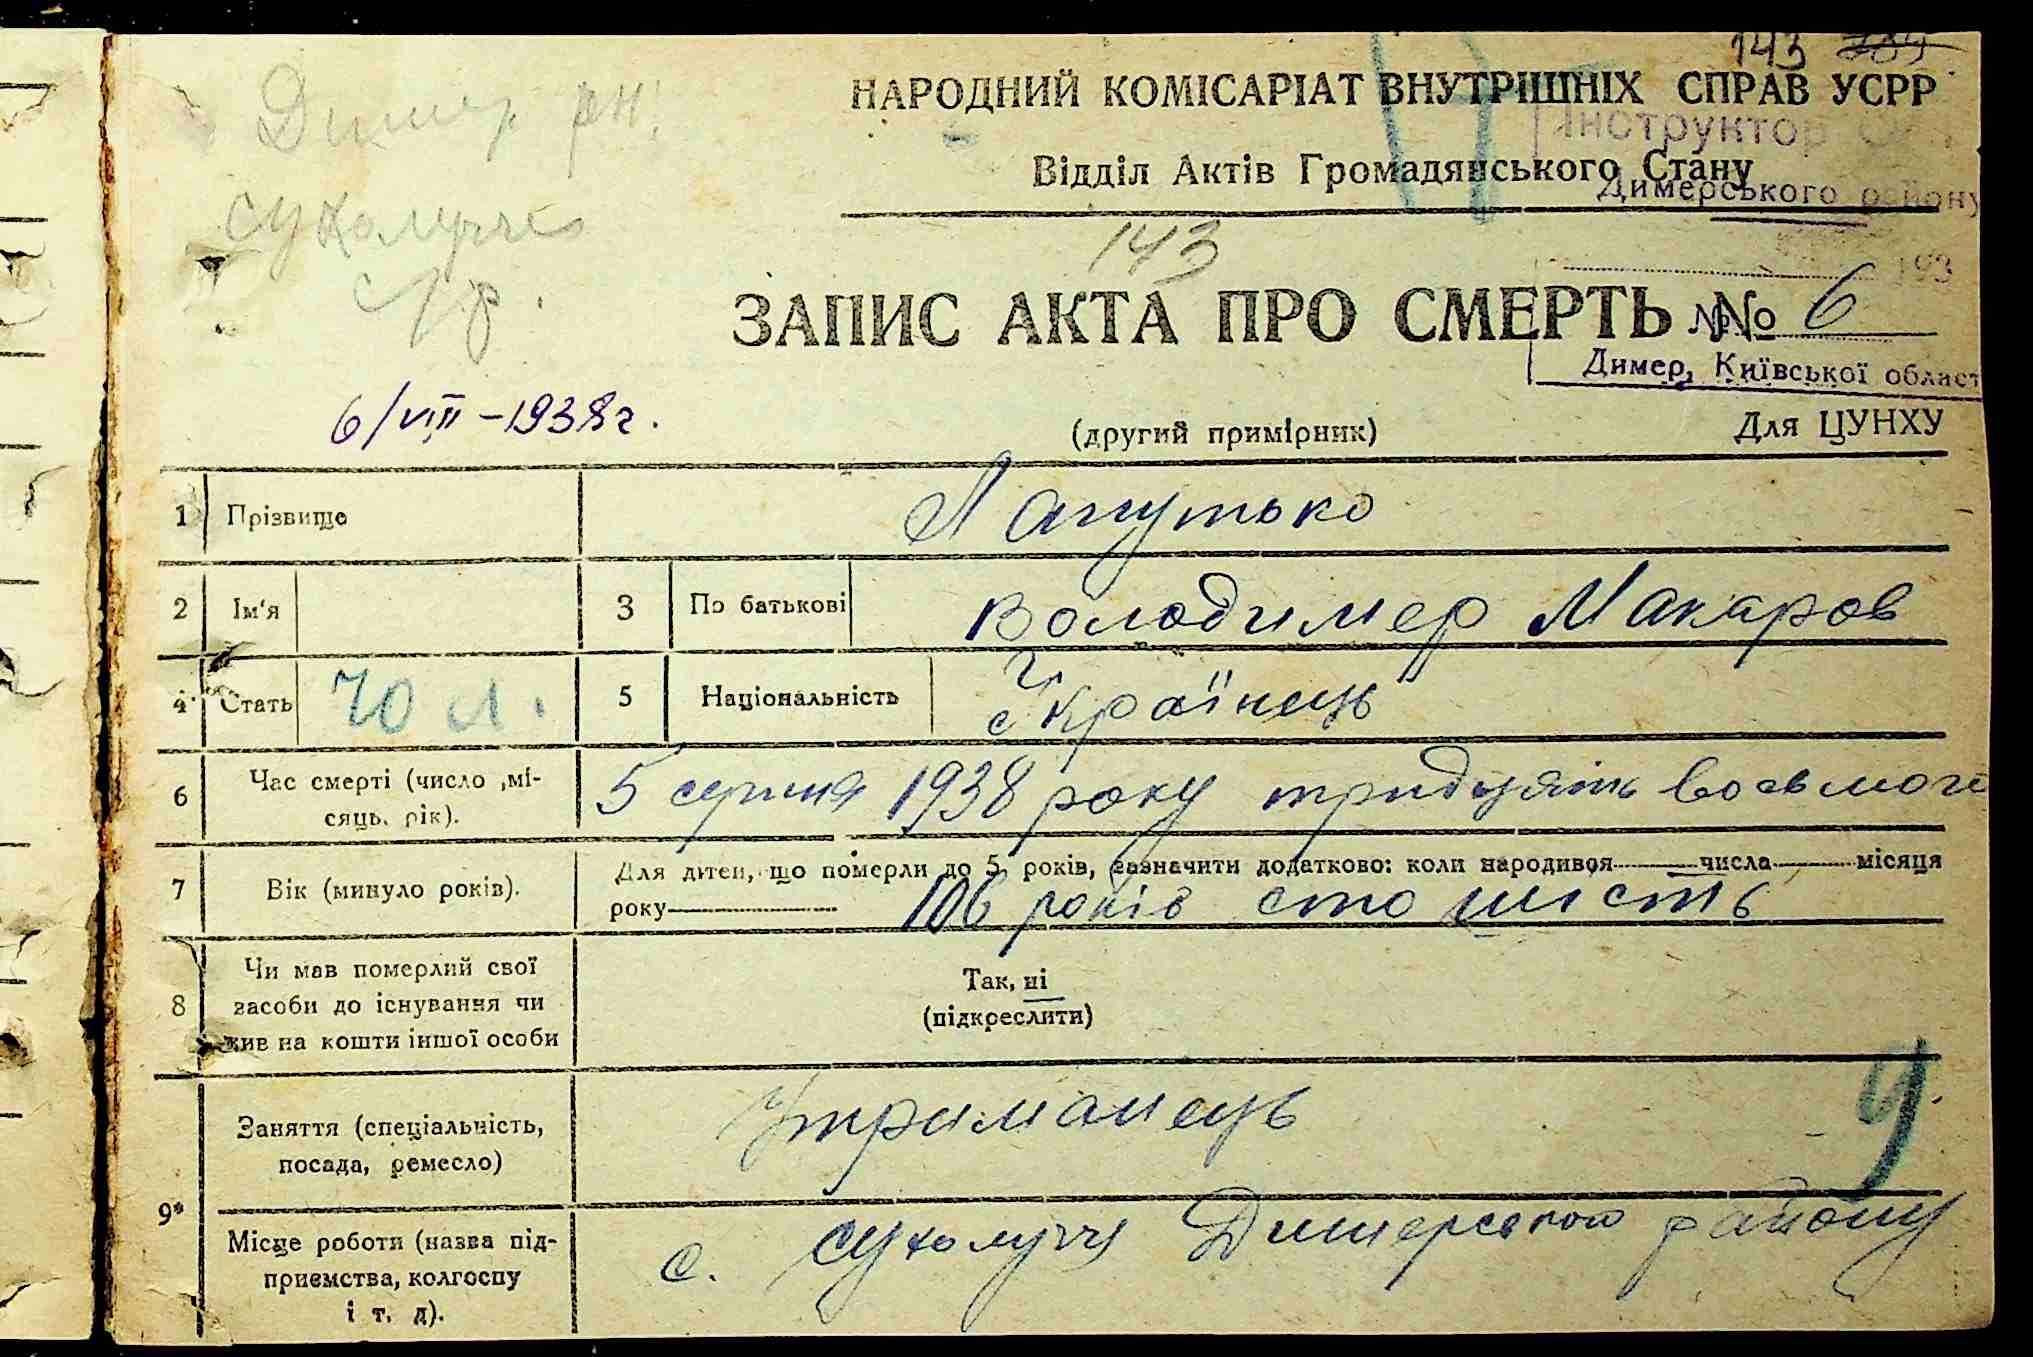 143 784
Димер. рн.
НАРОДНИЙ КОМІСАРІАТ ВНУТРІШНІХ СПРАВ УСРР
Інструктор
Відділ Актів Громадянського Стану
Димерського району
сухолуччя
143
193
с/р.
ЗАПИС АКТА ПРО СМЕРТЬ № 6
№
Димер, Київської област
6/VIII – 1938 г.
(другий примірник)
Для ЦУНХУ
1 Прізвище Лапутько
2 Ім'я 3 По батькові Володимер Макаров
4 Стать 70 л. 5 Національність Українець
6 Час смерті (число ,мі-
сяць. рік).
5 серпня 1938 року тридцять восьмого
7 Вік (минуло років).
Для дітей, що померли до 5 років, зазначити додатково: коли народився числа місяця
року 106 років сто шість
8 Чи мав померлий свої
засоби до існування чи
жив на кошти іншої особи
Так, ні
(підкреслити)
9*
Заняття (спеціальність,
посада, ремесло)
Утриманець
У
Місце роботи (назва під-
приємства, колгоспу
і т. д).
с. Сухолуччя Димерського району